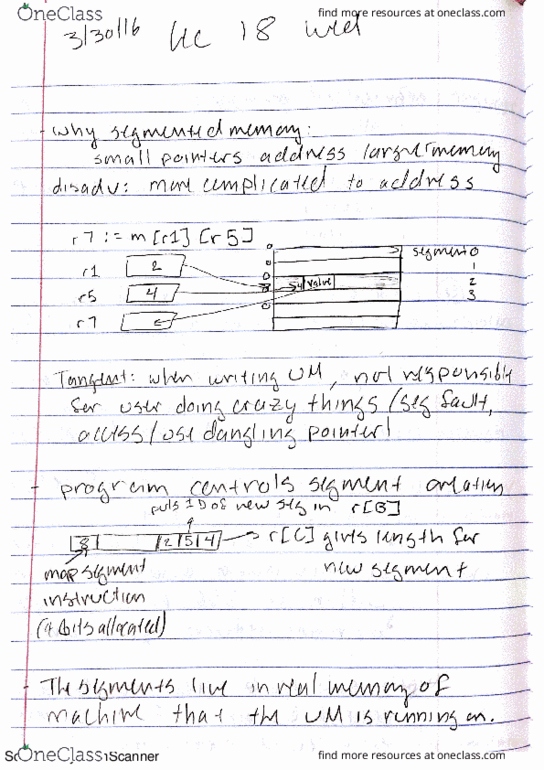 OneClass
find more resources at oneclass.com
3/30/16 Lec 18 Wed
- Why segmented memory:
small pointers address large memory
disadv: more complicated to address
r7 := m[r1][r5]
segment 0
r1 2
1
r5 4
value
2
r7
3
Tangent: when writing UM, not responsible
for user doing crazy things (seg fault,
access/use dangling pointer)
- program controls segment creation
puts ID of new seg in r[B]
8 2 5 4 r[C] gives length for
map segment
new segment
instruction
(4 bits allocated)
- The segments live in real memory of
machine that the UM is running on.
OneClass
Scanner
find more resources at oneclass.com